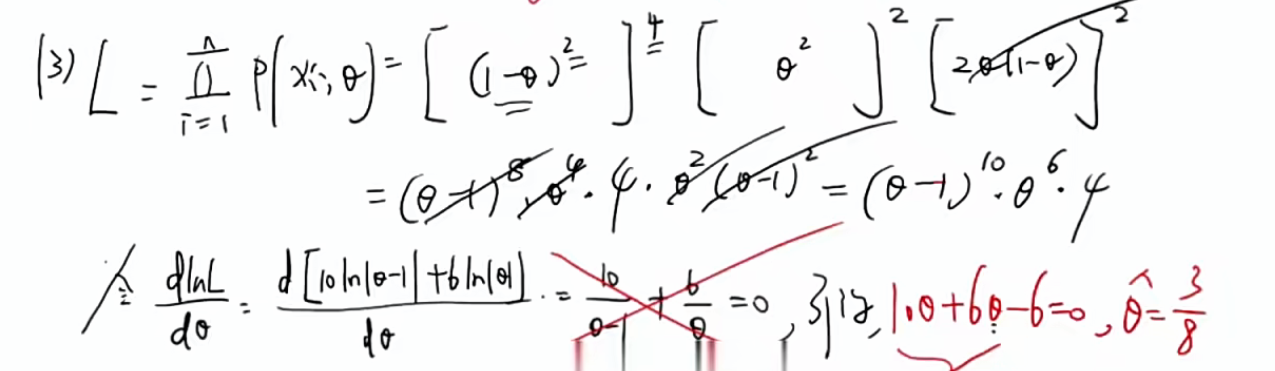 (3) L = ∏_{i=1}^{n} P(xi; θ) = [(1-θ)^2]^4 [θ^2]^2 [2θ(1-θ)]^2
= (θ-1)^8 · θ^4 · 4 · θ^2 (θ-1)^2 = (θ-1)^10 · θ^6 · 4
令 dlnL/dθ = d[10ln|θ-1| + 6ln|θ|]/dθ = 10/(θ-1) + 6/θ = 0, 可得, 10θ+6θ-6=0, θ̂=3/8